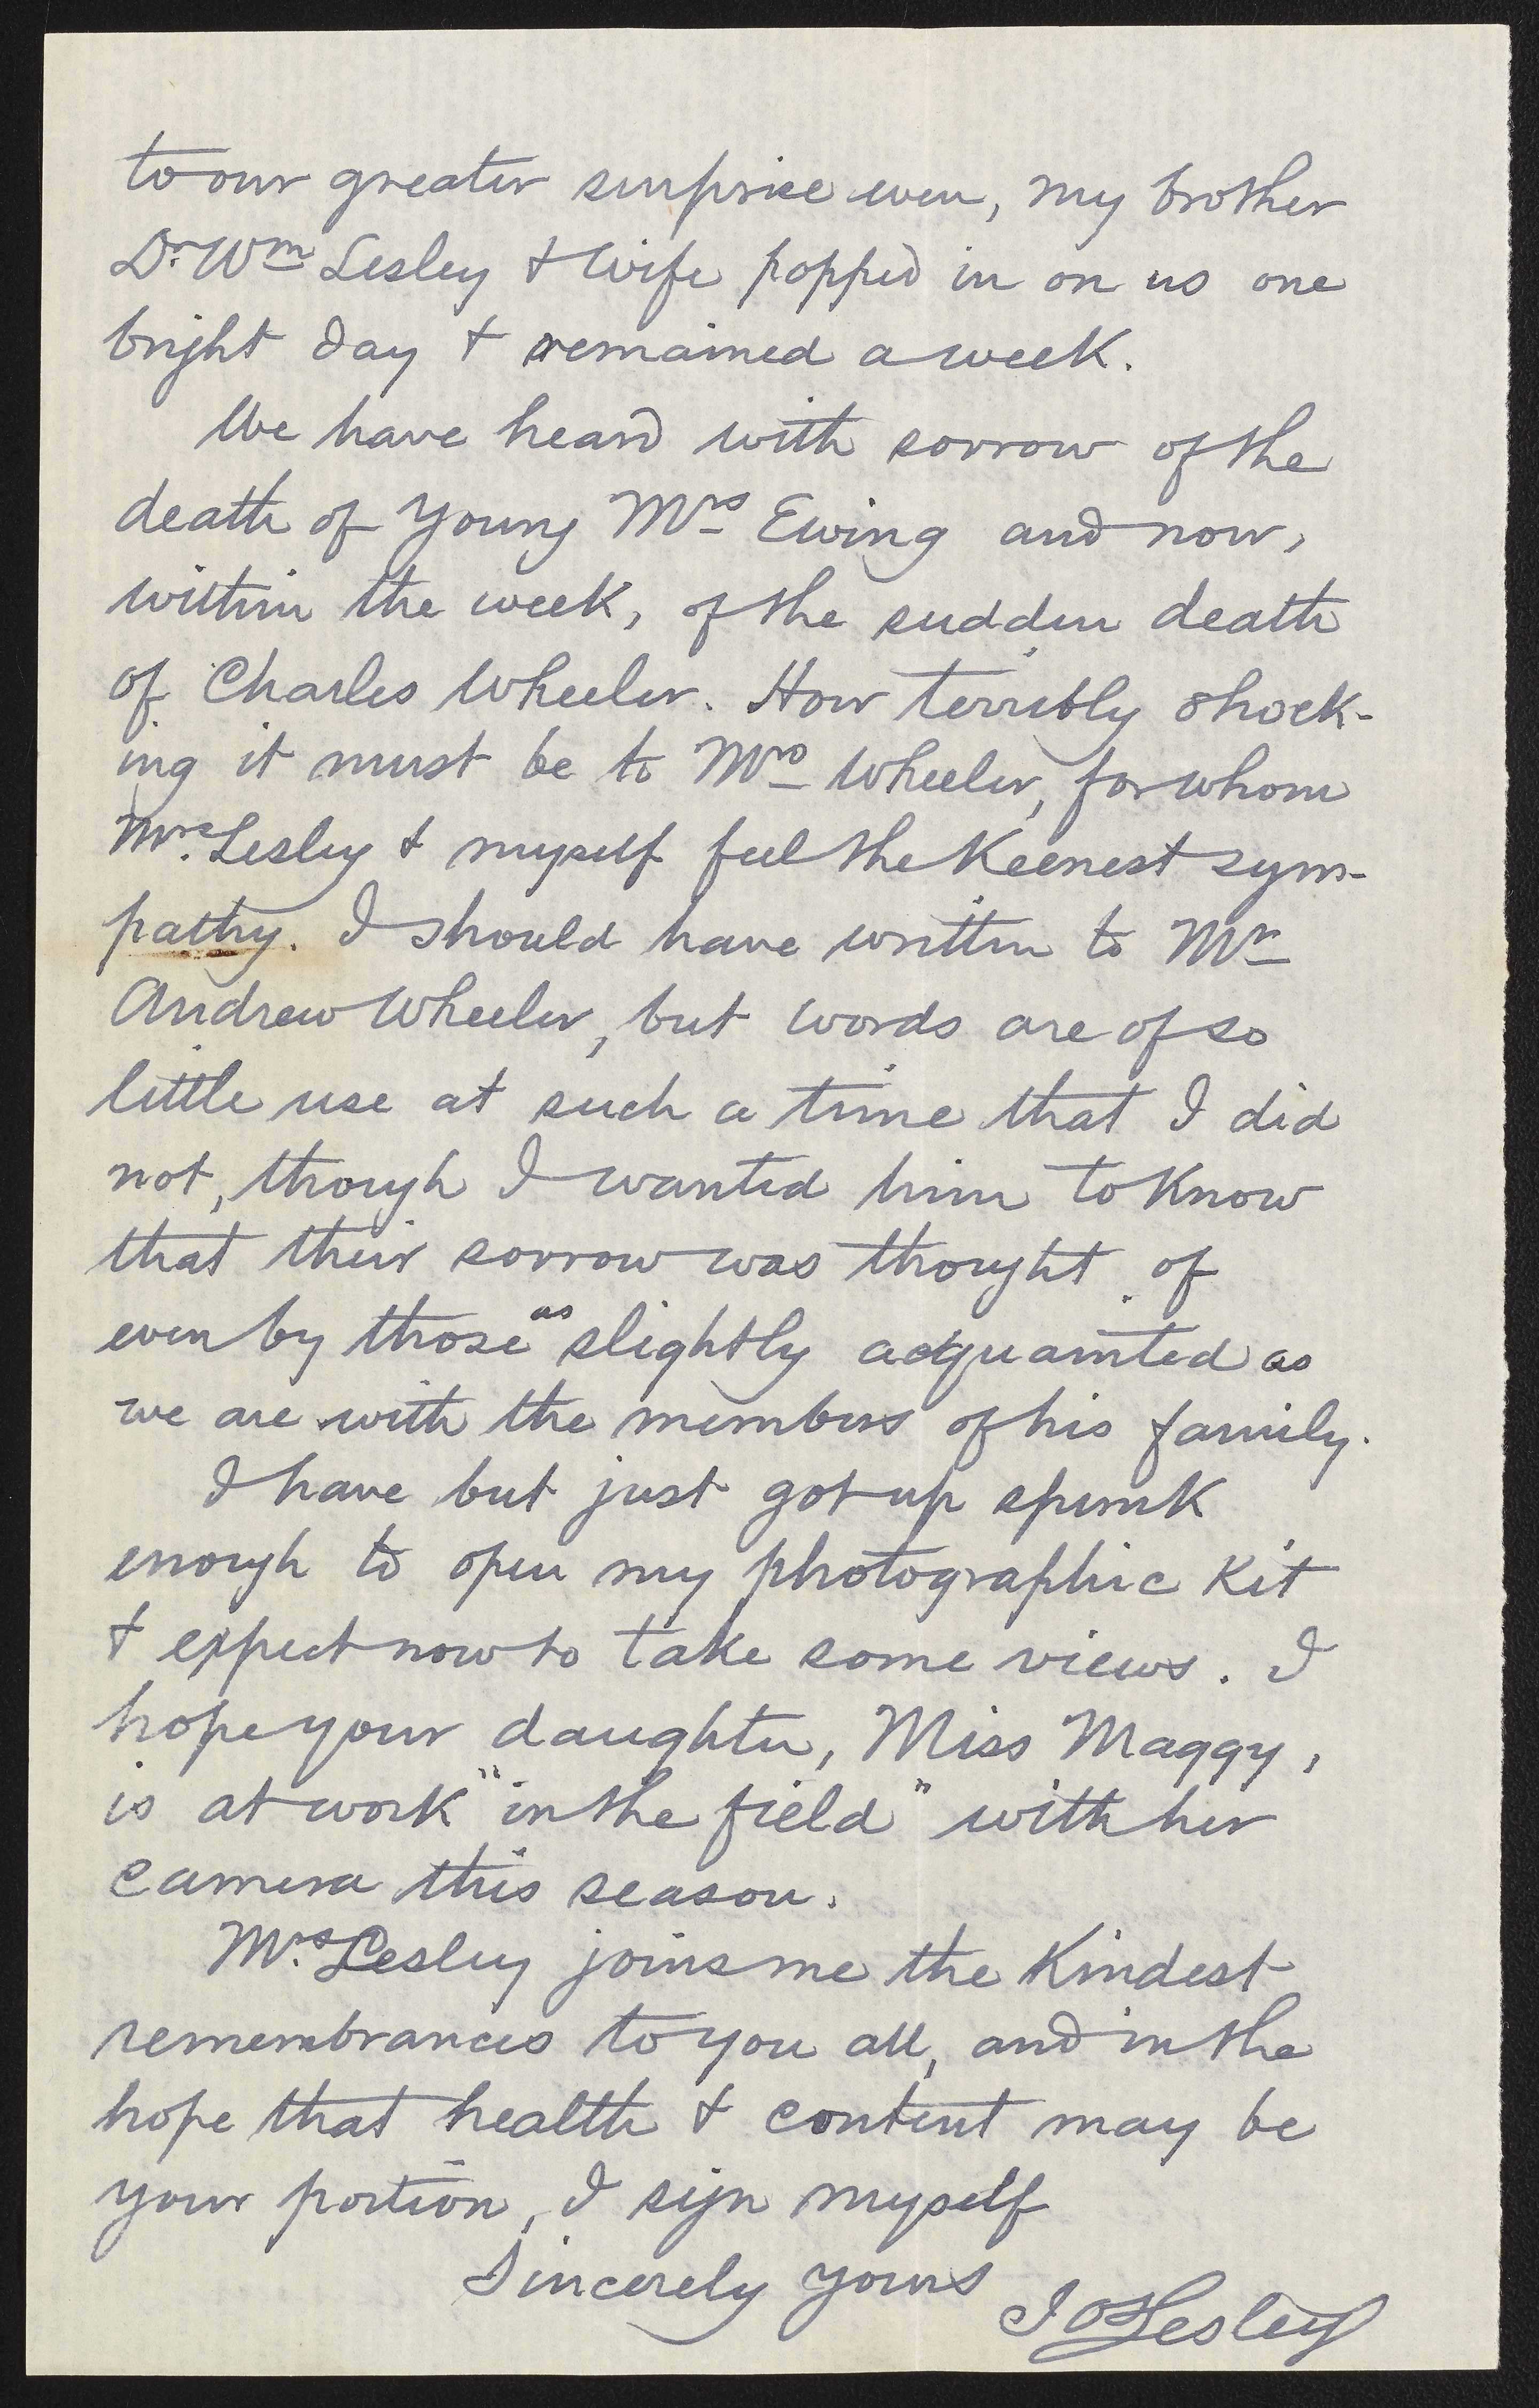 to our greater surprise even, my brother
Dr. Wm Lesley & wife popped in on us one
bright day & remained a week.
We have heard with sorrow of the
death of young Mrs Ewing and now,
within the week, of the sudden death
of Charles Wheeler. How terribly shock-
ing it must be to Mrs Wheeler, for whom
Mrs. Lesley & myself feel the keenest sym-
pathy. I should have written to Mr
Andrew Wheeler, but words are of so
little use at such a time that I did
not, though I wanted him to know
that their sorrow was thought of
even by those as slightly acquainted as
we are with the members of his family.
I have but just got up spunk
enough to open my photographic kit
& expect now to take some views. I
hope your daughter, Miss Maggy,
is at work "in the field" with her
camera this season.
Mrs. Lesley joins me the kindest
remembrances to you all, and in the
hope that health & content may be
your portion, I sign myself
Sincerely yours
Lesley